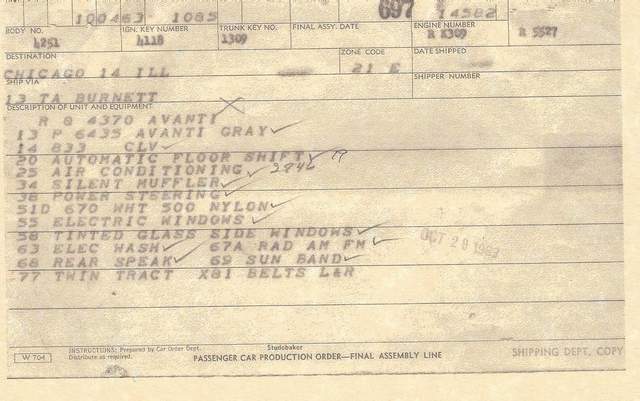 100463 1085 697 14582
BODY NO. IGN. KEY NUMBER TRUNK KEY NO. FINAL ASSY. DATE ENGINE NUMBER
4251 4118 1309 R K309 R 5527
DESTINATION ZONE CODE DATE SHIPPED
CHICAGO 14 ILL 21 E
SHIP VIA SHIPPER NUMBER
13 TA BURNETT
DESCRIPTION OF UNIT AND EQUIPMENT
R Q 4370 AVANTI
13 P 6435 AVANTI GRAY
14 833 CLV
20 AUTOMATIC FLOOR SHIFT
25 AIR CONDITIONING 2846
34 SILENT MUFFLER
38 POWER STEERING
51D 670 WHT 500 NYLON
55 ELECTRIC WINDOWS
58 TINTED GLASS SIDE WINDOWS
63 ELEC WASH 67A RAD AM FM
OCT 29 1963
68 REAR SPEAK 69 SUN BAND
77 TWIN TRACT X81 BELTS L&R
W 704 INSTRUCTIONS: Prepared by Car Order Dept. Distribute as required.
Studebaker
PASSENGER CAR PRODUCTION ORDER—FINAL ASSEMBLY LINE
SHIPPING DEPT. COPY